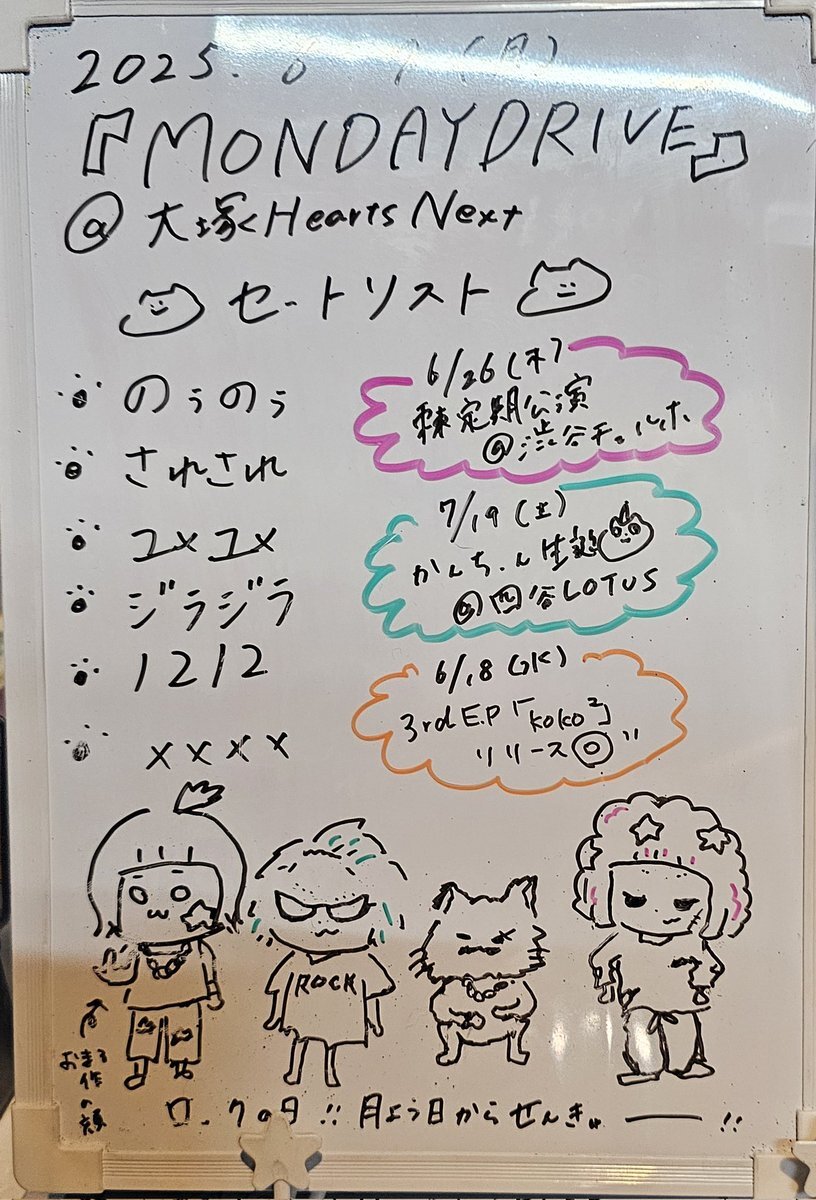 2025. 6 9 (月)
『MONDAYDRIVE』
@大塚Hearts Next
セットリスト
のぅのぅ
されされ
ユメユメ
ジラジラ
1212
××××
6/26(木)
定期公演
@渋谷チェルホ
7/19(土)
かんちゃん生誕
@四谷LOTUS
6/18(水)
3rd E.P「koko²」
リリース◎"
ROCK
おまる
作の顔
ロックの日!! 月よう日からせんきゅー!!